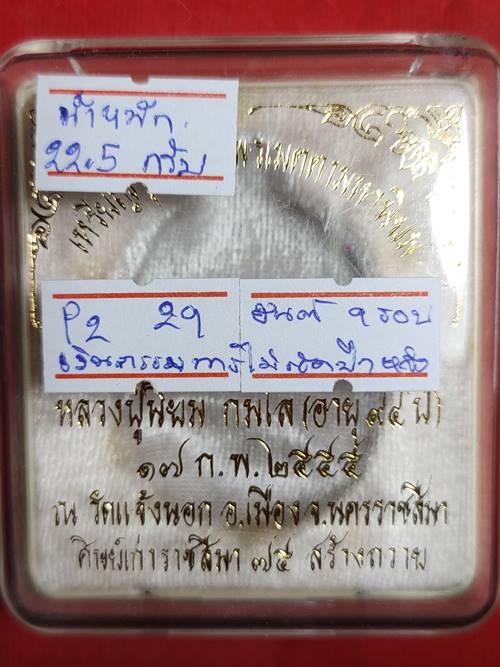 น้ำหนัก
22.5 กรัม
เหรียญ พ เมตตามหานิยม
P2 29 ยันต์ ๑ รอบ
เงินกรรมการไม่ตัดปีกหลัง
หลวงปู่นิยม กมโล (อายุ ๙๔ ปี)
๑๗ ก.พ. ๒๕๕๕
ณ วัดแจ้งนอก อ.เมือง จ.นครราชสีมา
ศิษย์เก่าราชสีมา ๗๕ สร้างถวาย